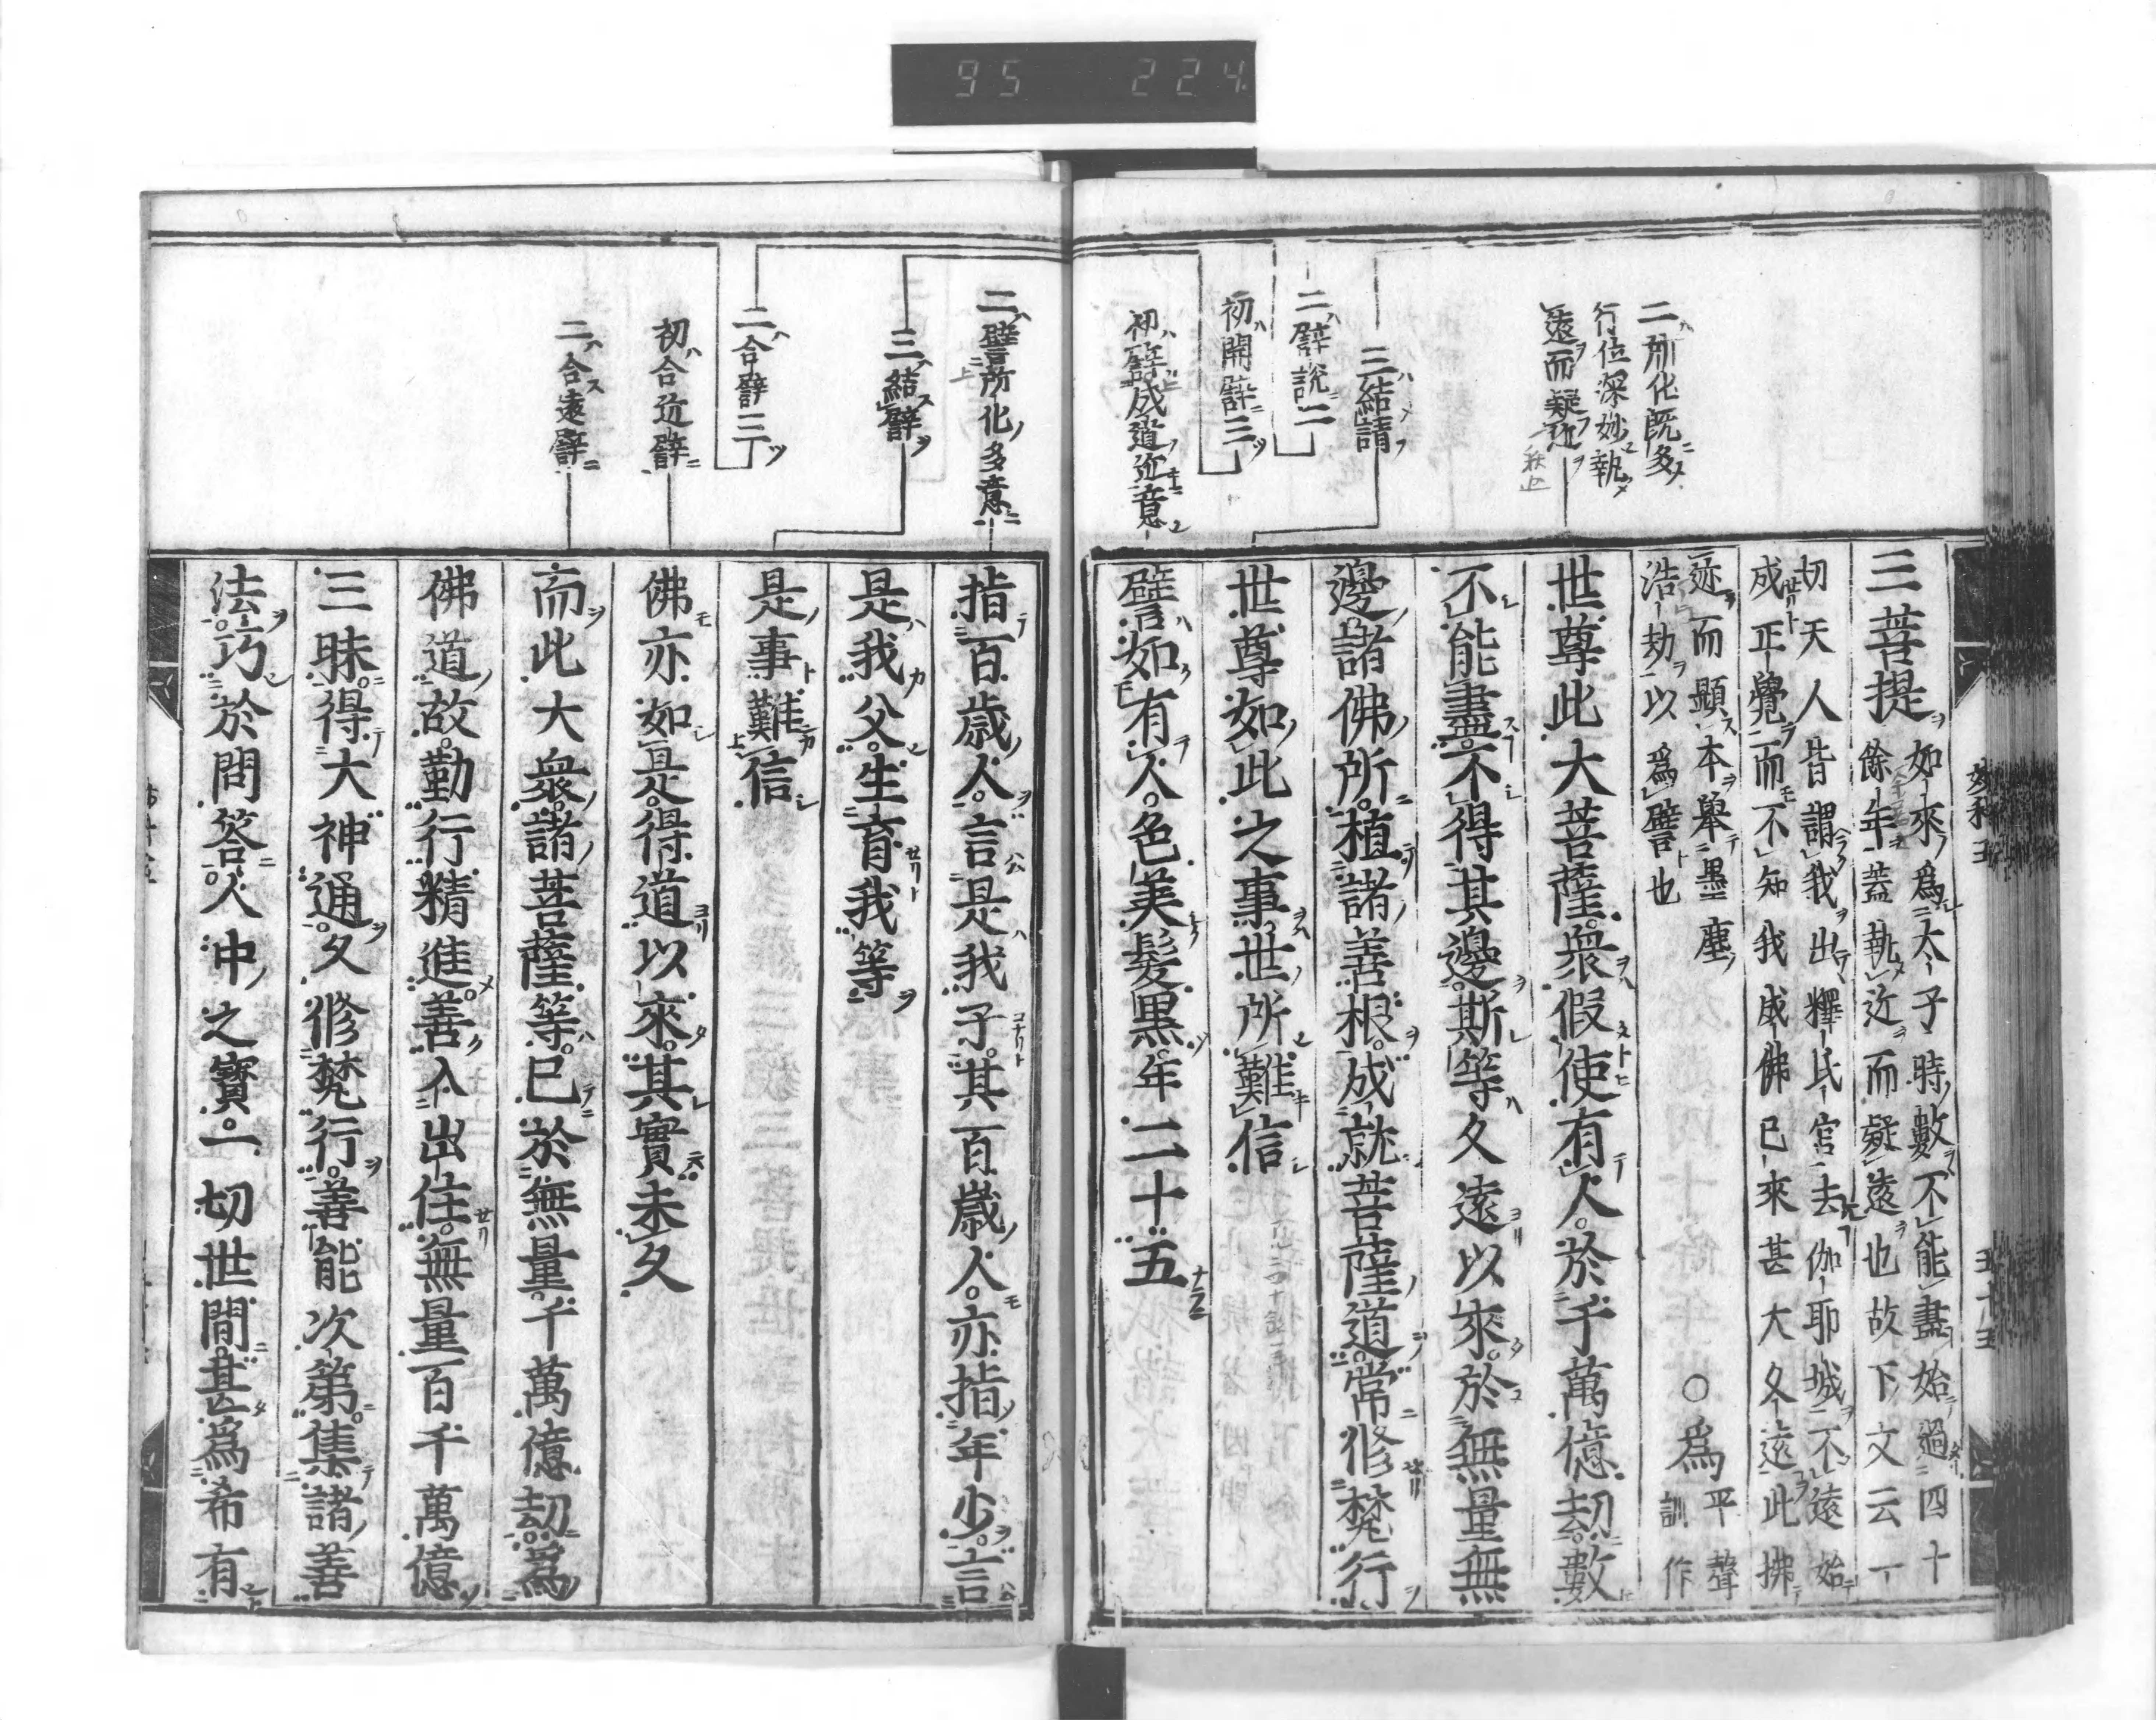 95 224
二所化既多
行位深妙執
遠而疑近
三結請
二譬說二
初開譬三
初譬成道近意
三菩提
如來爲太子時數不能盡始過四十
餘年蓋執近而疑遠也故下文云一
切天人皆謂我出釋氏宮去伽耶城不遠始
成正覺而不知我成佛已來甚大久遠此拂
迹而顯本舉墨塵
浩劫以爲譬也
○爲
平聲
訓作
世尊此大菩薩衆假使有人於千萬億劫數
不能盡不得其邊斯等久遠以來於無量無
邊諸佛所植諸善根成就菩薩道常修梵行
世尊如此之事世所難信
譬如有人色美髮黑年二十五
二譬所化多意
三結譬
二合譬二
初合近譬
二合遠譬
指百歲人言是我子其百歲人亦指年少言
是我父生育我等
是事難信
佛亦如是得道以來其實未久
而此大衆諸菩薩等已於無量千萬億劫爲
佛道故勤行精進善入出住無量百千萬億
三昧得大神通久修梵行善能次第集諸善
法巧於問答人中之寶一切世間甚爲希有